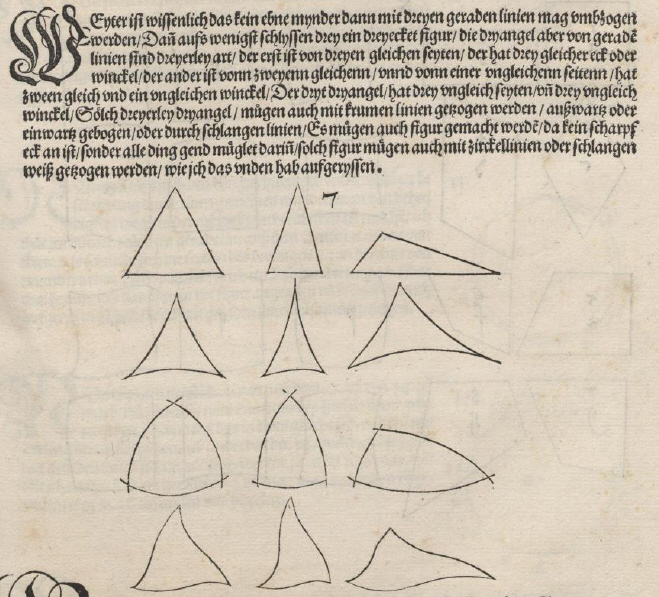 WEyter ist wissenlich das kein ebne mynder dann mit dreyen geraden linien mag vmbzogen
werden/Dañ aufs wenigst schlyssen drey ein dreyecket figur/die dryangel aber von geradẽ
linien sind dreyerley art/ der erst ist von dreyen gleichen seyten/der hat drey gleicher eck oder
winckel/der ander ist vonn zweyenn gleichenn/vnnd vonn einer vngleichenn seitenn/hat
zween gleich vnd ein vngleichen winckel/Der dryt dryangel/hat drey vngleich seyten/vñ drey vngleich
winckel/Sölch dreyerley dryangel/mügen auch mit krumen linien getzogen werden/außwartz oder
einwartz gebogen/oder durch schlangen linien/Es mügen auch figur gemacht werdẽ/da kein scharpf
eck an ist/sonder alle ding gend müglet dariñ/solch figur mügen auch mit zirckellinien oder schlangen
weiß getzogen werden/wie jch das vnden hab aufgeryssen.
7